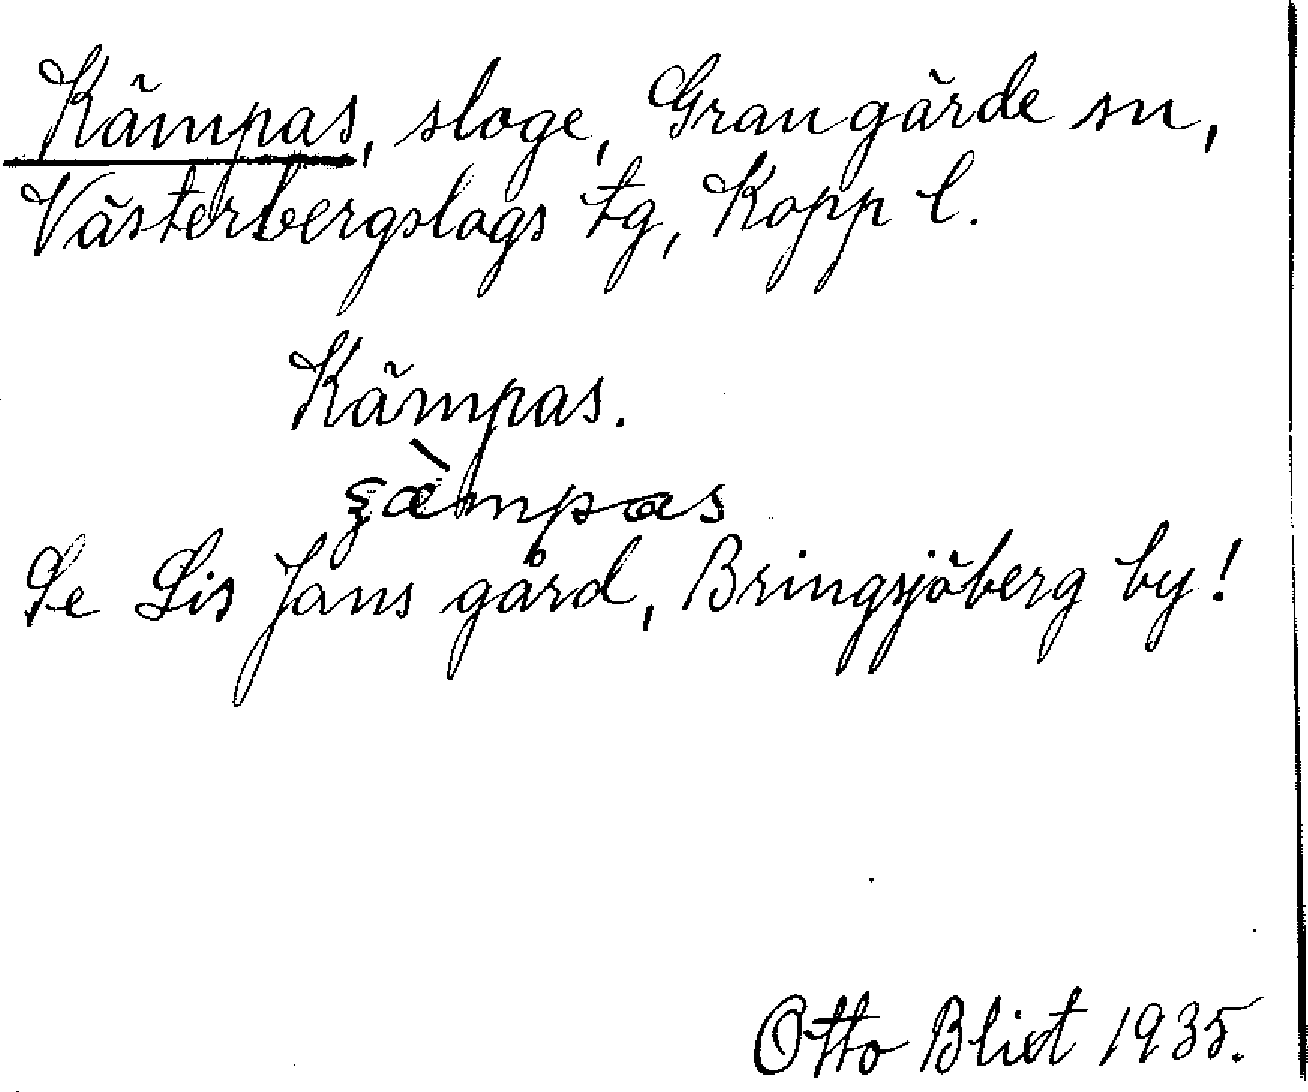 Kämpas, sloge, Grangärde sn,
Västerbergslags tg, Kopp l.
Kämpas.
Se Lis Jans gård, Bringsjöberg by!
Otto Blixt 1935.